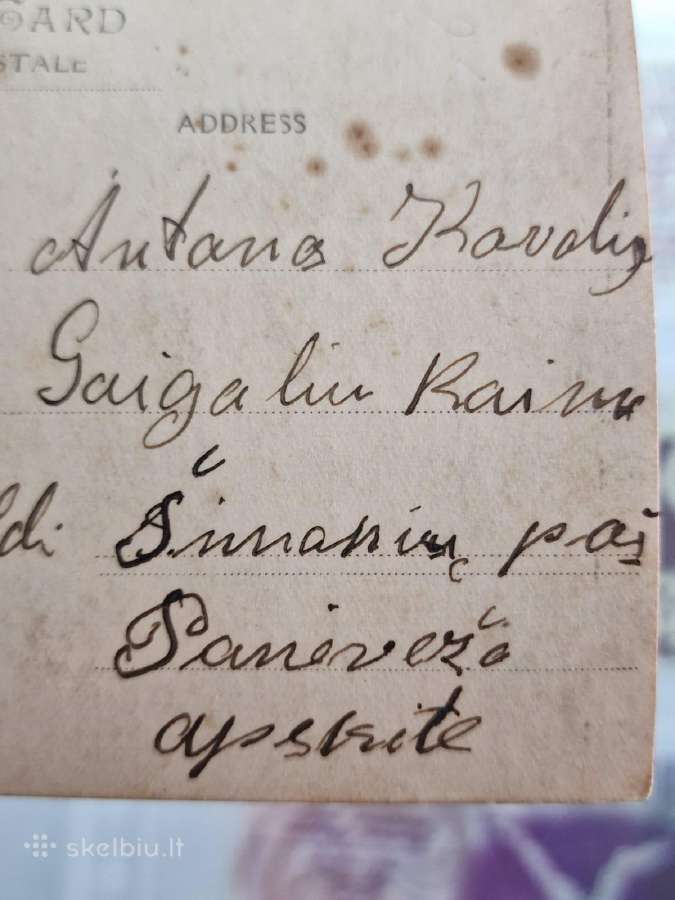 CARD
STALE
ADDRESS
Antana Kavaliu
Gaigaliu Kaimo
di Šimonių paš
Panevežio
apskrite
skelbiu.lt